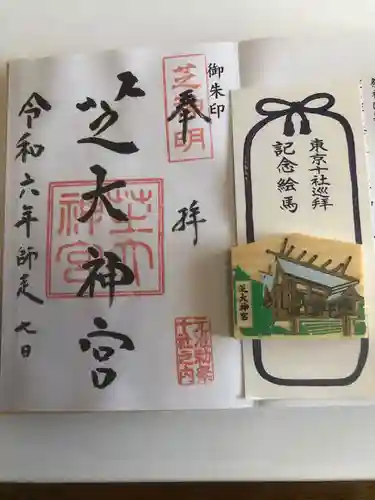 御朱印
奉拝
芝神明
芝大神宮
芝大神宮
令和六年師走七日
東京十社巡拝
記念絵馬
芝大神宮